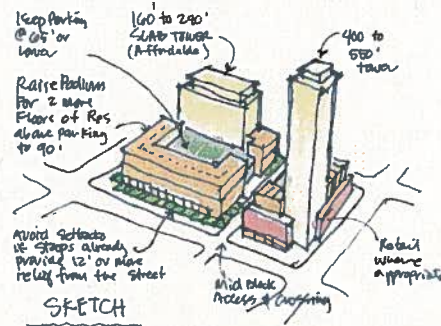 Keep Parking
@ 65' or
lower
160' to 240'
SLAB TOWER
(Affordable)
400 to
550'
tower
Raise Podium
For 2 more
Floors of Res
above parking
to 90'
Avoid Setbacks
if Stoops already
provide 12' or more
relief from the Street
Mid Block
Access & Crossing
Retail
where
appropriate
SKETCH